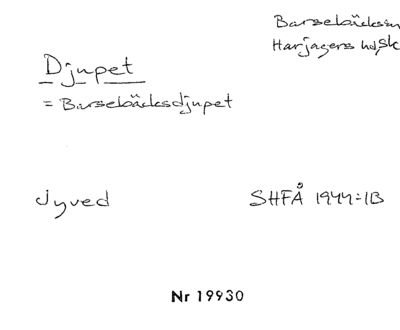 Barsebäcksm
Harjagers hd, Sk
Djupet
= Barsebäcksdjupet
Jyved
SHFÅ 1944:1B
Nr 19930